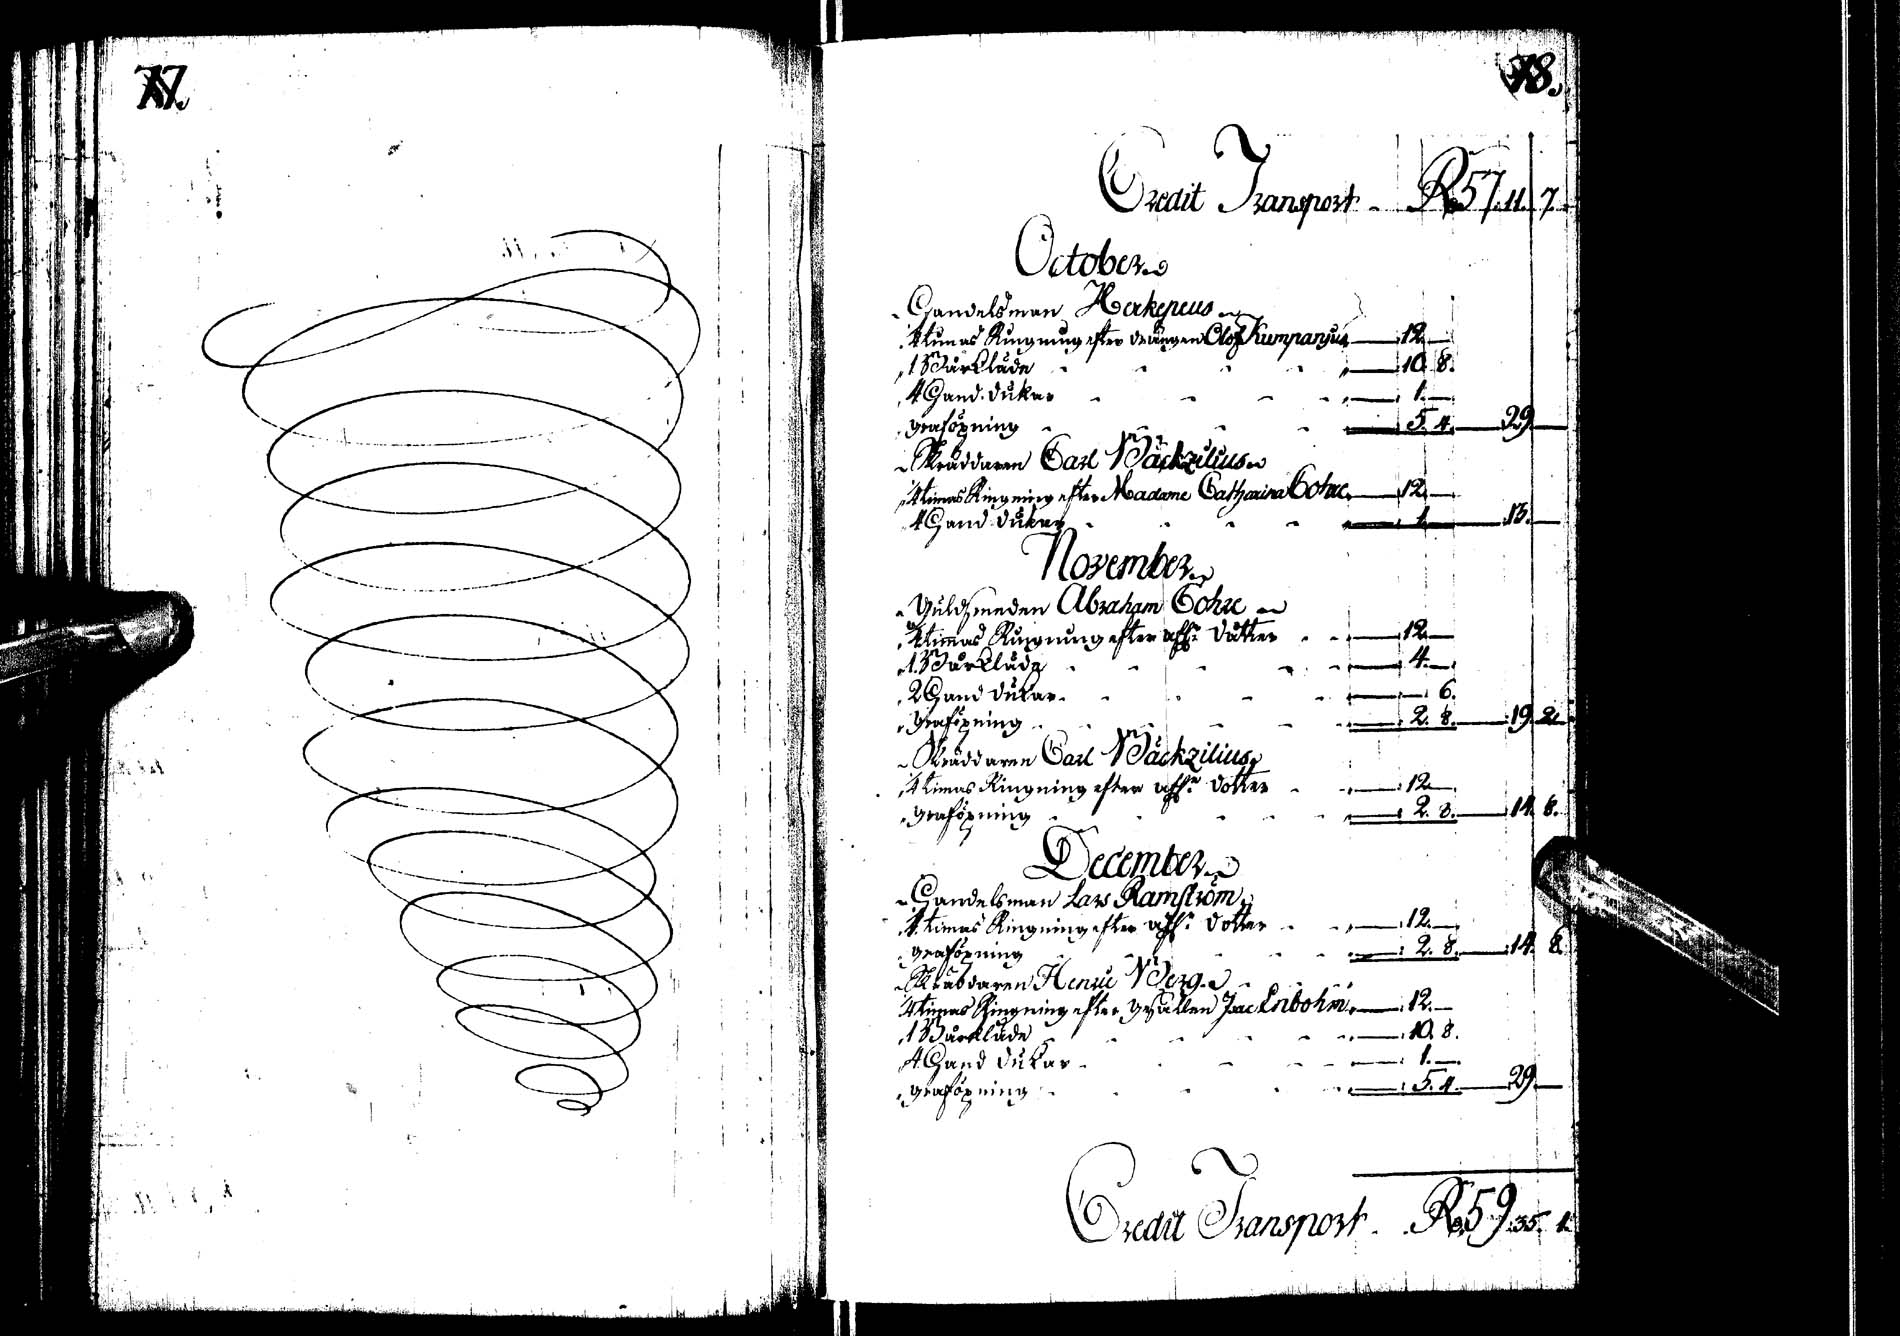 77.
78.
Credit Transport - R 57. 11. 7.
October
Handelsman Herkepeus
4 timas Ringning efter drängen Olof Kumpanjus 12
1 Bårkläde 10 8.
4 Hand dukar 1.
graföpning 5. 4. 29
Skräddaren Carl Bäckzilius
4 timas Ringning efter Madame Catharina Gohre 12
4 Hand dukar 1 13.
November
Guldsmeden Abraham Gohre
4 timmas Ringning efter dåtter 12
1 Bårkläde 4.
2 Hand dukar 6.
graföpning 2. 8. 19. 2.
Skräddaren Carl Bäckzilius
4 timas Ringning efter dotter 12
graföpning 2. 8. 14. 8.
December
Handelsman Lars Ramström
4 timas Ringning efter dotter 12.
graföpning 2. 8. 14. 8.
Skräddaren Henric Berg
4 timas Ringning efter Gesällen Jsac Enbohm 12.
1 Bårkläde 10. 8.
4 Hand dukar 1.
graföpning 5. 4. 29
Credit Transport - R 59. 35. 1.